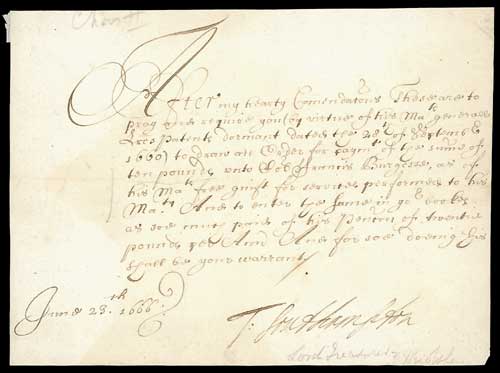 Chas II
After my hearty Comendatons These are to
pray and require you (by virtue of his Maᵗˢ generall
Lres Patents dormant dated the 28ᵗʰ of
1660) to draw an Order for paymᵗ of the sume of
ten pounds unto Francis Burghesse, as of
his Maᵗˢ free guift for services performed to his
Maᵗʸ And to enter the same in yoʳ bookes
as soe much paid of his Pencon of twentie
pounds per Ann And for soe doeing this
shall be your warrant
June 23.ᵗʰ 1666
T. Southampton
Lord Treasurer